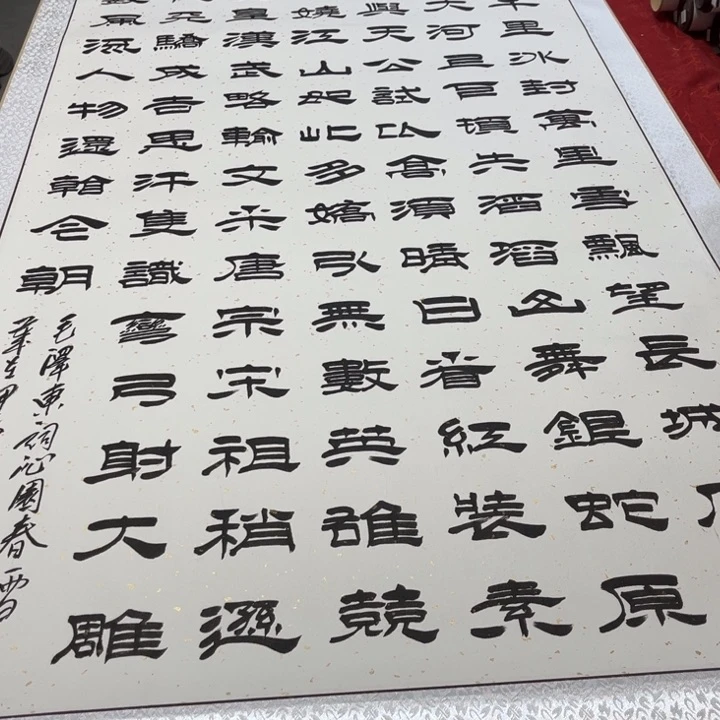 千里冰封萬里雪飄望長城
大河上下頓失滔滔山舞銀蛇原
與天公試比高須晴日看紅裝素
嬈江山如此多嬌引無數英雄競
皇漢武略輸文采唐宗宋祖稍遜
天驕成吉思汗隻識彎弓射大雕
數風流人物還看今朝
毛澤東詞沁園春雪
歲在甲